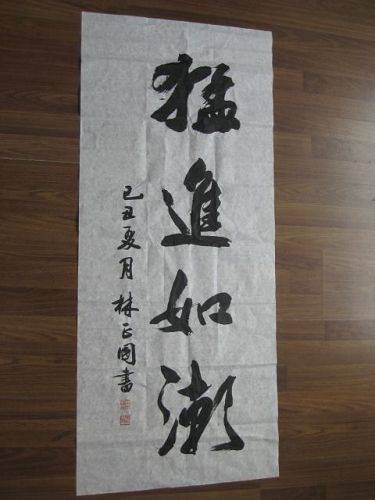 猛進如潮
己丑夏月林正國書